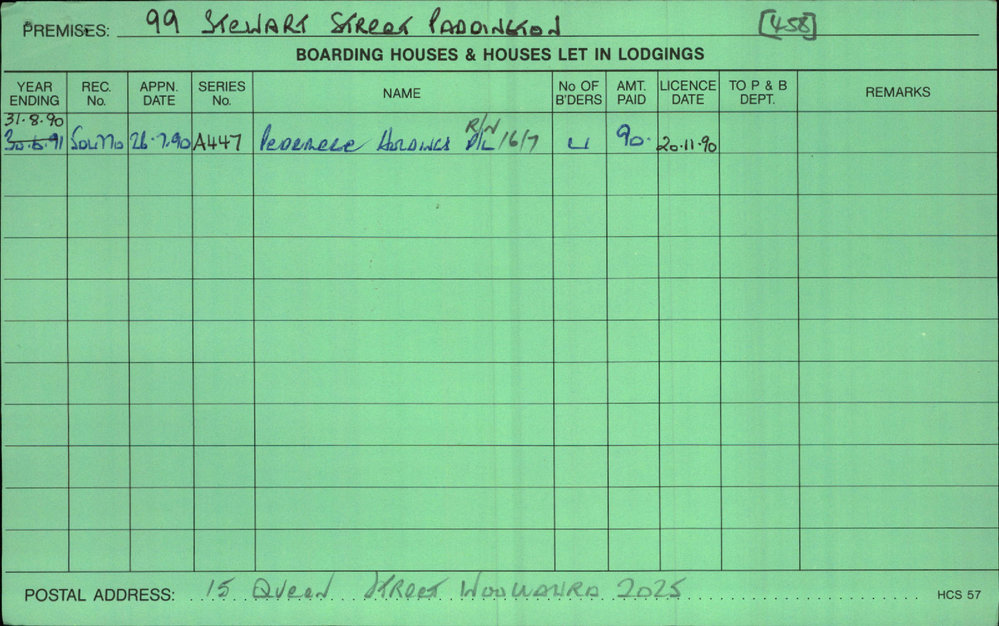 PREMISES: 99 STEWART STREET PADDINGTON [458]
BOARDING HOUSES & HOUSES LET IN LODGINGS
YEAR ENDING REC. No. APPN. DATE SERIES No. NAME No OF B'DERS AMT. PAID LICENCE DATE TO P & B DEPT. REMARKS
31.8.90
30.6.91 26.7.90 A447 HOLDINGS P/L R/N 16/7 90. 20.11.90
POSTAL ADDRESS: 15 QUEEN STREET WOOLLAHRA 2025 HCS 57